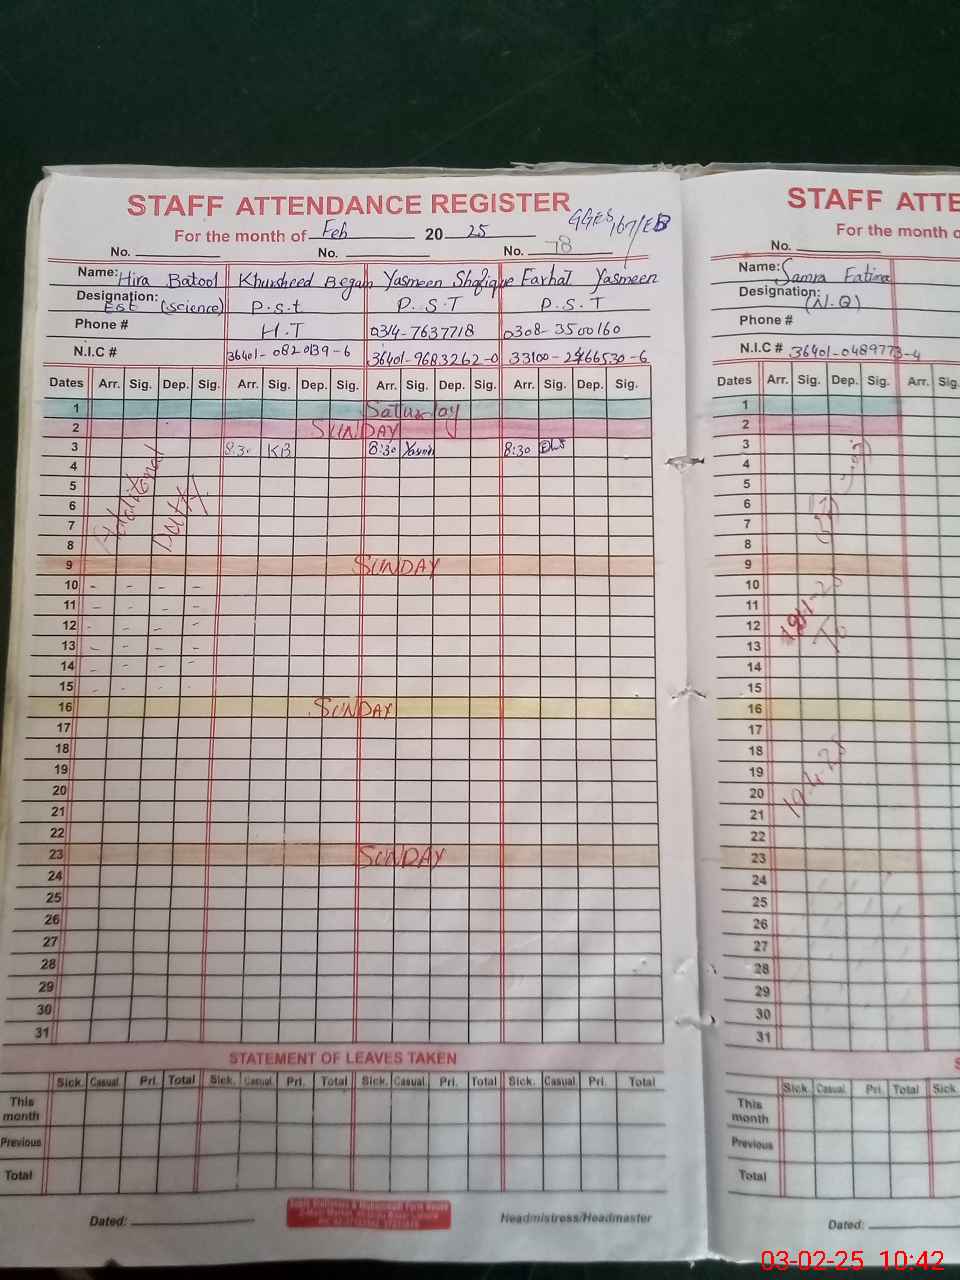 STAFF ATTENDANCE REGISTER
GGES 167/EB
For the month of Feb 20 25
No. No. No. 78
Name: Hira Batool Khursheed Begam Yasmeen Shafique Farhat Yasmeen
Designation: Est (science) P.s.t P.S.T P.S.T
Phone # H.T 0314-7637718 0308-3500160
N.I.C # 36401-0820139-6 36401-9683262-0 33100-2466530-6
Dates Arr. Sig. Dep. Sig. Arr. Sig. Dep. Sig. Arr. Sig. Dep. Sig. Arr. Sig. Dep. Sig.
1 Saturday
2 SUNDAY
3 8:30 KB 8:30 8:30
4
5
6
7
8
Additional Duty
9 SUNDAY
10 - - - -
11 - - - -
12 - - - -
13 - - - -
14 - - - -
15 - - - -
16 SUNDAY
17
18
19
20
21
22
23 SUNDAY
24
25
26
27
28
29
30
31
STATEMENT OF LEAVES TAKEN
Sick. Casual. Pri. Total Sick. Casual. Pri. Total Sick. Casual. Pri. Total Sick. Casual. Pri. Total
This month
Previous
Total
Dated: Headmistress/Headmaster
STAFF ATTE
For the month o
No.
Name: Samra Fatima
Designation: (N.Q)
Phone #
N.I.C # 36401-0489773-4
Dates Arr. Sig. Dep. Sig. Arr. Sig.
1
2
3
4
5
6
7
8
9
10
11
12
13
To
14
15
16
17
18
19
20
21
22
23
24
25
26
27
28
29
30
31
S
Sick. Casual. Pri. Total Sick.
This month
Previous
Total
Dated:
03-02-25 10:42